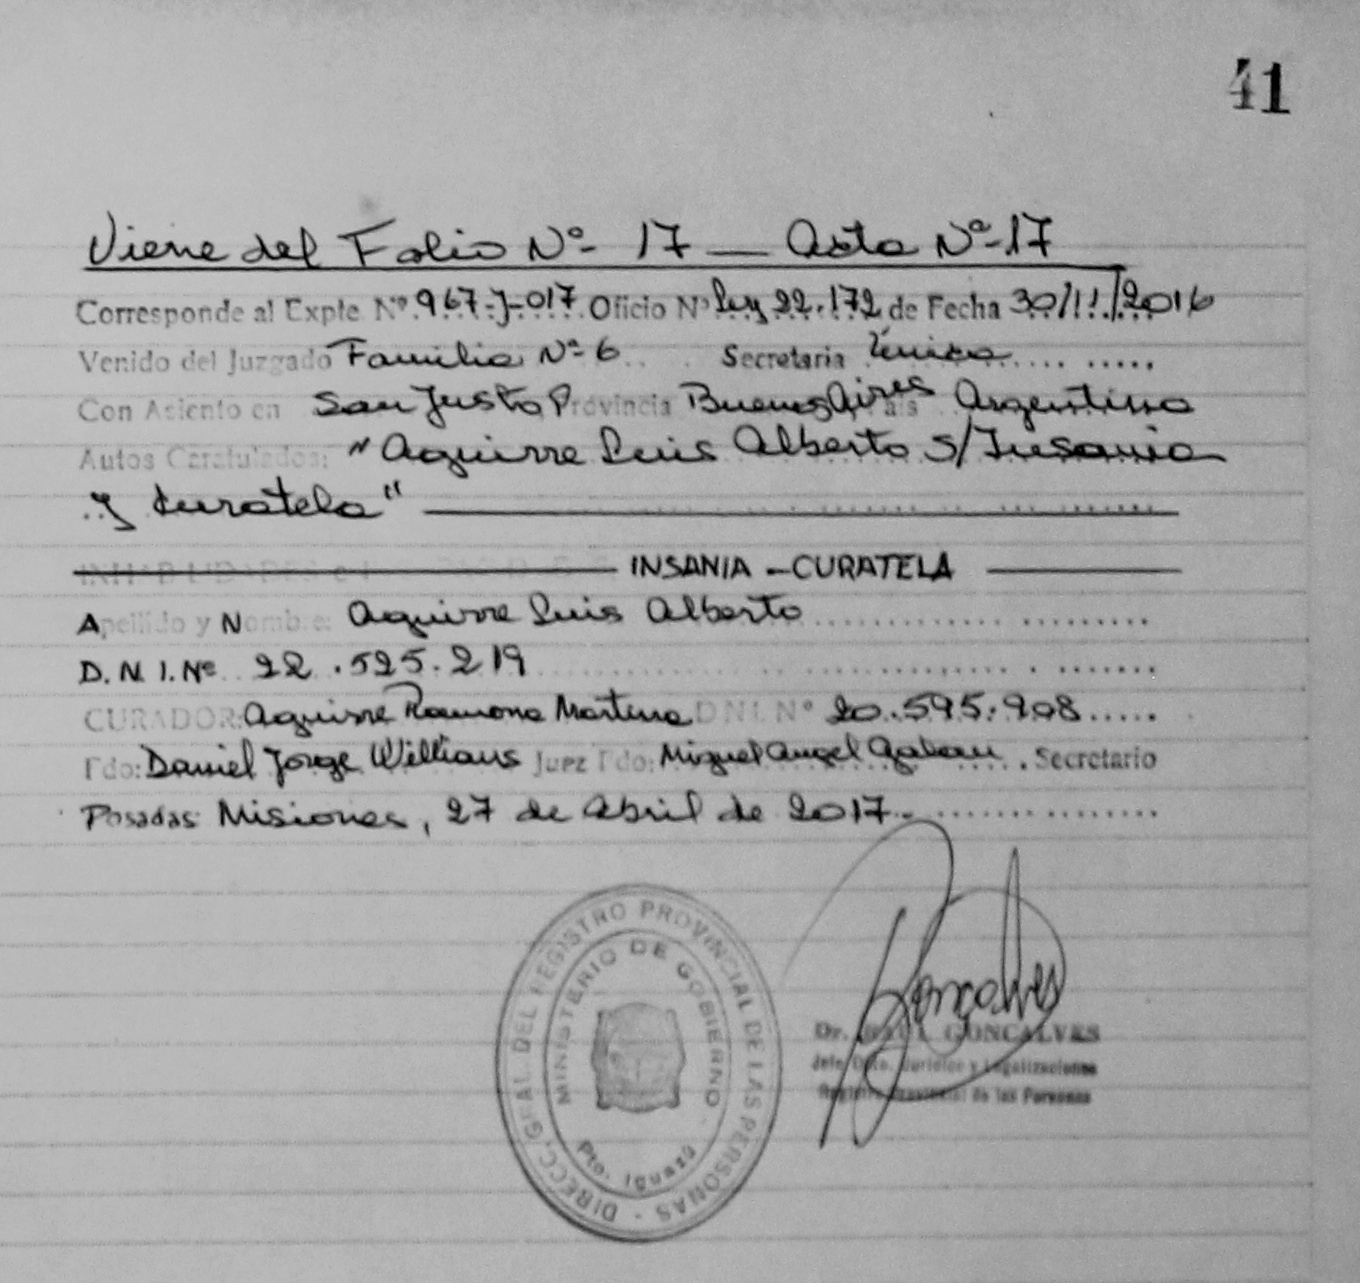 41
Viene del Folio Nº- 17 — Acta Nº-17
Corresponde al Expte Nº 967-J-017 Oficio Nº Ley 22.172 de Fecha 30/11/2016
Venido del Juzgado Familia Nº 6 Secretaria Única
Con Asiento en San Justo Provincia Buenos Aires País Argentina
Autos Caratulados: "Aguirre Luis Alberto S/Insania
y Curatela"
INSANIA - CURATELA
Apellido y Nombre: Aguirre Luis Alberto
D.N.I. Nº 22.525.219
CURADOR: Aguirre Ramona Martina DNI Nº 20.595.908
Fdo: Daniel Jorge Willians Juez Fdo: Miguel Angel Secretario
Posadas Misiones, 27 de Abril de 2017.-
DIRECC. GRAL. DEL REGISTRO PROVINCIAL DE LAS PERSONAS -
MINISTERIO DE GOBIERNO
Pto. Iguazú
Goncalves
Dr. RAUL GONCALVES
Jefe Dpto. Jurídico y Legalizaciones
Registro Provincial de las Personas